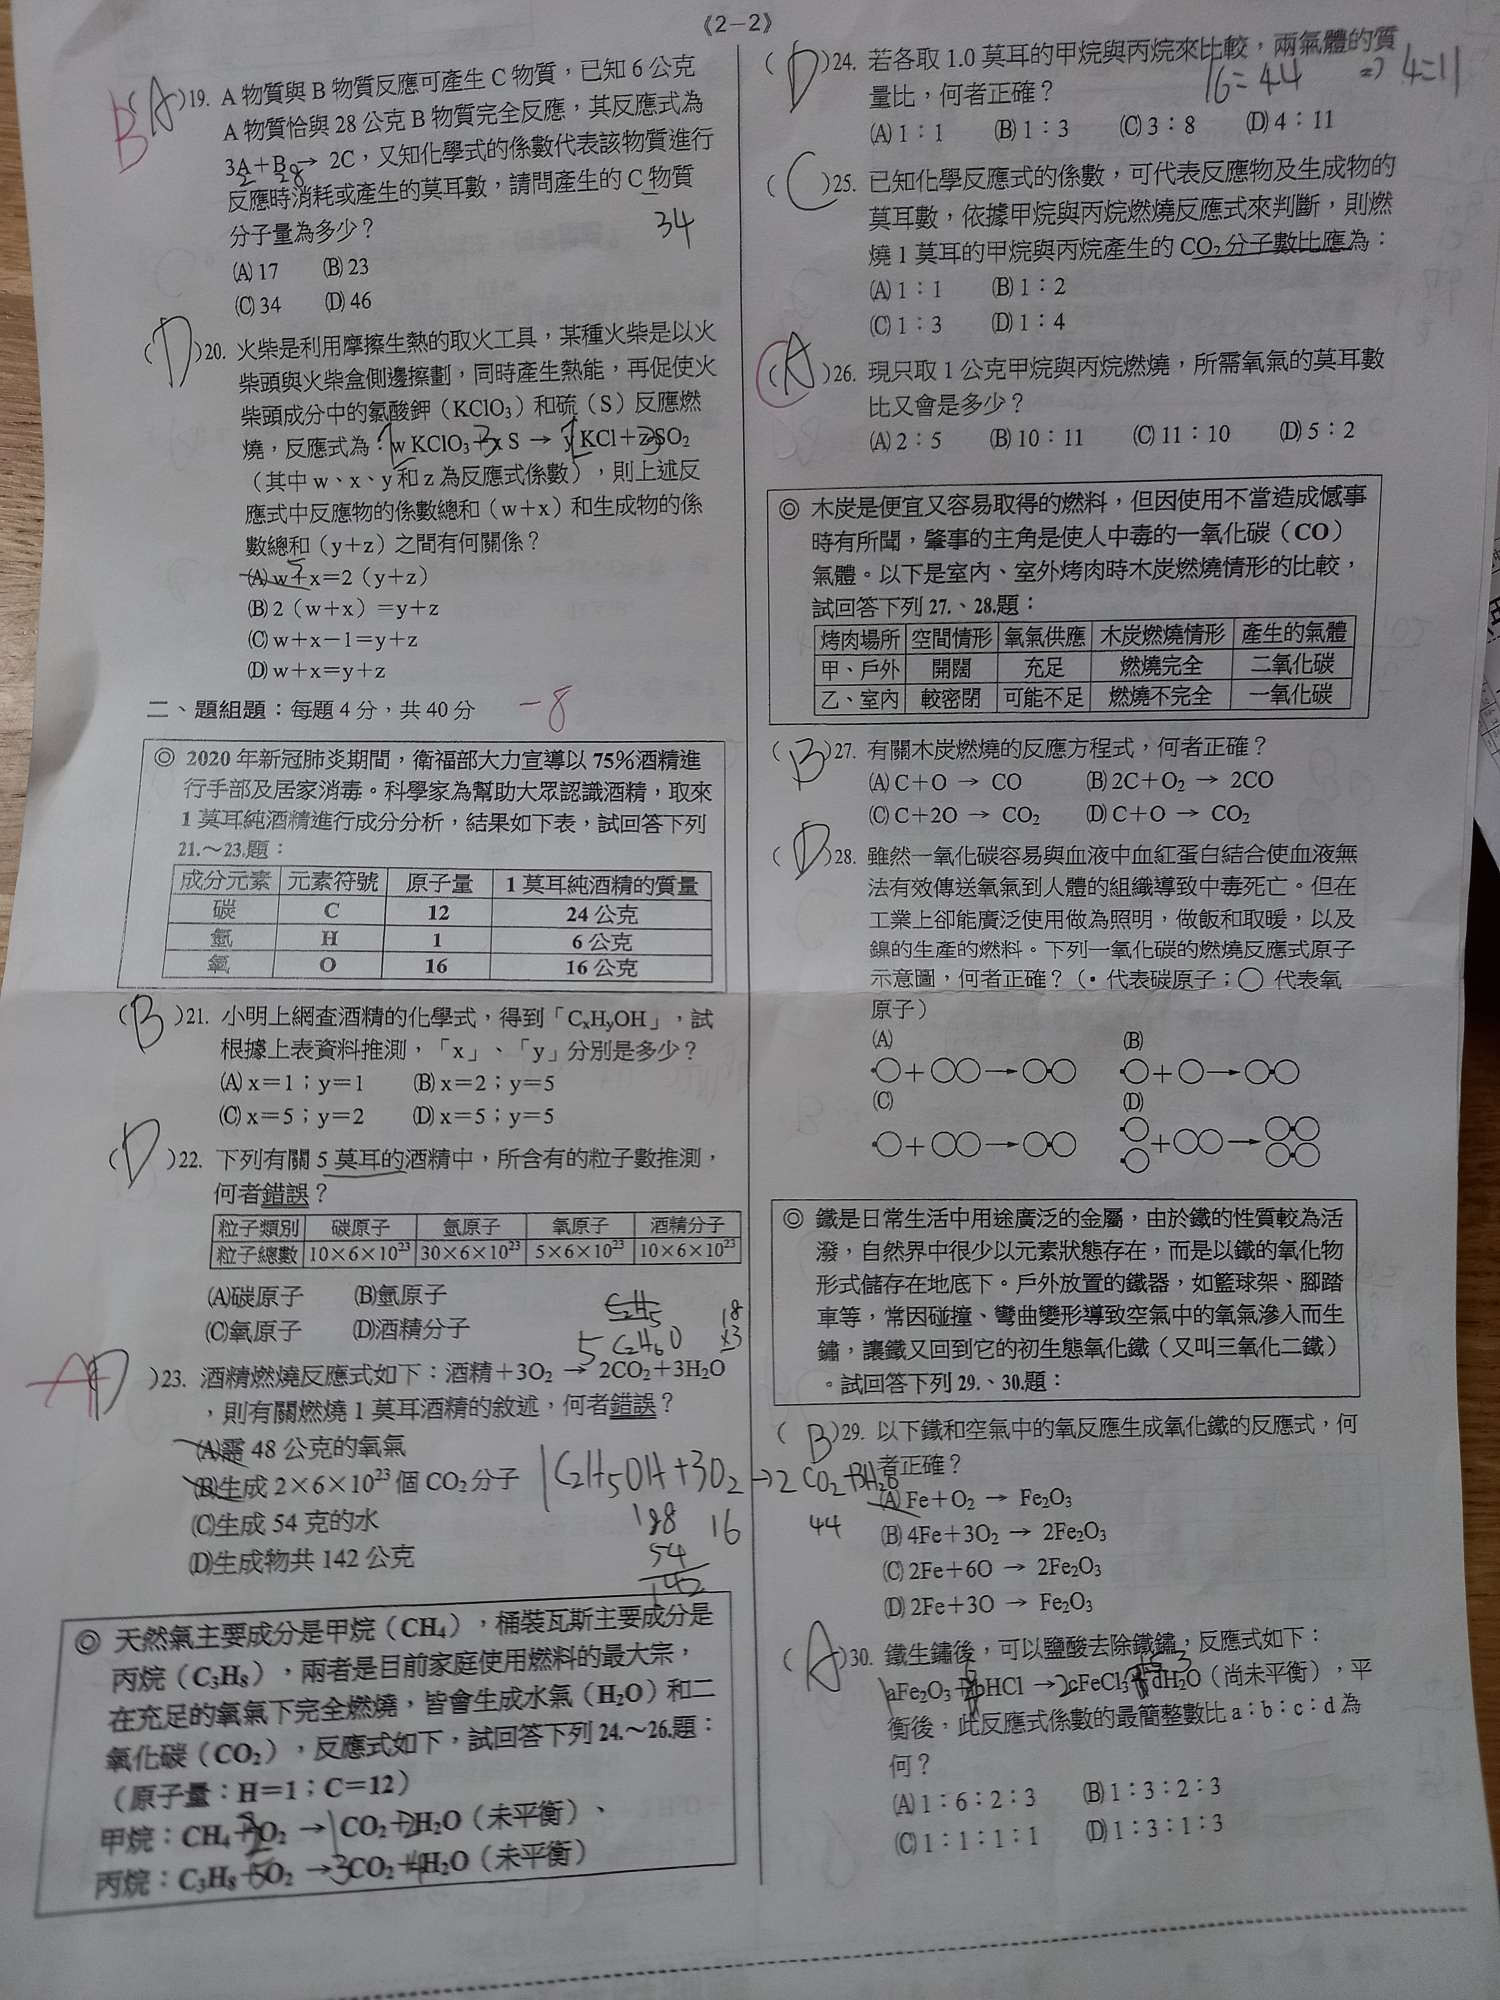 《2－2》
B(A)19. A 物質與 B 物質反應可產生 C 物質，已知 6 公克
A 物質恰與 28 公克 B 物質完全反應，其反應式為
3A＋B → 2C，又知化學式的係數代表該物質進行
2 28
反應時消耗或產生的莫耳數，請問產生的 C 物質
分子量為多少？
34
(A) 17 (B) 23
(C) 34 (D) 46
(D)20. 火柴是利用摩擦生熱的取火工具，某種火柴是以火
柴頭與火柴盒側邊擦劃，同時產生熱能，再促使火
柴頭成分中的氯酸鉀（KClO₃）和硫（S）反應燃
燒，反應式為：w KClO₃＋x S → y KCl＋z SO₂
（其中 w、x、y 和 z 為反應式係數），則上述反
應式中反應物的係數總和（w＋x）和生成物的係
數總和（y＋z）之間有何關係？
(A) w＋x＝2（y＋z）
(B) 2（w＋x）＝y＋z
(C) w＋x－1＝y＋z
(D) w＋x＝y＋z
二、題組題：每題 4 分，共 40 分 -8
◎ 2020 年新冠肺炎期間，衛福部大力宣導以 75%酒精進
行手部及居家消毒。科學家為幫助大眾認識酒精，取來
1 莫耳純酒精進行成分分析，結果如下表，試回答下列
21.～23.題：
成分元素 元素符號 原子量 1 莫耳純酒精的質量
碳 C 12 24 公克
氫 H 1 6 公克
氧 O 16 16 公克
(B)21. 小明上網查酒精的化學式，得到「CxHyOH」，試
根據上表資料推測，「x」、「y」分別是多少？
(A) x＝1；y＝1 (B) x＝2；y＝5
(C) x＝5；y＝2 (D) x＝5；y＝5
(D)22. 下列有關 5 莫耳的酒精中，所含有的粒子數推測，
何者錯誤？
粒子類別 碳原子 氫原子 氧原子 酒精分子
粒子總數 10×6×10²³ 30×6×10²³ 5×6×10²³ 10×6×10²³
(A)碳原子 (B)氫原子
(C)氧原子 (D)酒精分子
C₂H₅
5 C₂H₆O
18
×3
A D )23. 酒精燃燒反應式如下：酒精＋3O₂ → 2CO₂＋3H₂O
，則有關燃燒 1 莫耳酒精的敘述，何者錯誤？
(A)需 48 公克的氧氣
(B)生成 2×6×10²³ 個 CO₂ 分子
(C)生成 54 克的水
(D)生成物共 142 公克
1C₂H₅OH+3O₂→2CO₂+3H₂O
16 44
54
142
◎ 天然氣主要成分是甲烷（CH₄），桶裝瓦斯主要成分是
丙烷（C₃H₈），兩者是目前家庭使用燃料的最大宗，
在充足的氧氣下完全燃燒，皆會生成水氣（H₂O）和二
氧化碳（CO₂），反應式如下，試回答下列 24.～26.題：
（原子量：H＝1；C＝12）
甲烷：CH₄＋2O₂ → 1CO₂＋2H₂O（未平衡）、
丙烷：C₃H₈＋5O₂ → 3CO₂＋4H₂O（未平衡）
(D)24. 若各取 1.0 莫耳的甲烷與丙烷來比較，兩氣體的質
量比，何者正確？
16=44 ⇒ 4=11
(A) 1：1 (B) 1：3 (C) 3：8 (D) 4：11
(C)25. 已知化學反應式的係數，可代表反應物及生成物的
莫耳數，依據甲烷與丙烷燃燒反應式來判斷，則燃
燒 1 莫耳的甲烷與丙烷產生的 CO₂ 分子數比應為：
(A) 1：1 (B) 1：2
(C) 1：3 (D) 1：4
C(A)26. 現只取 1 公克甲烷與丙烷燃燒，所需氧氣的莫耳數
比又會是多少？
(A) 2：5 (B) 10：11 (C) 11：10 (D) 5：2
◎ 木炭是便宜又容易取得的燃料，但因使用不當造成憾事
時有所聞，肇事的主角是使人中毒的一氧化碳（CO）
氣體。以下是室內、室外烤肉時木炭燃燒情形的比較，
試回答下列 27.、28.題：
烤肉場所 空間情形 氧氣供應 木炭燃燒情形 產生的氣體
甲、戶外 開闊 充足 燃燒完全 二氧化碳
乙、室內 較密閉 可能不足 燃燒不完全 一氧化碳
(B)27. 有關木炭燃燒的反應方程式，何者正確？
(A) C＋O → CO (B) 2C＋O₂ → 2CO
(C) C＋2O → CO₂ (D) C＋O → CO₂
(D)28. 雖然一氧化碳容易與血液中血紅蛋白結合使血液無
法有效傳送氧氣到人體的組織導致中毒死亡。但在
工業上卻能廣泛使用做為照明，做飯和取暖，以及
鎳的生產的燃料。下列一氧化碳的燃燒反應式原子
示意圖，何者正確？（• 代表碳原子；○ 代表氧
原子）
(A) (B)
(C) (D)
◎ 鐵是日常生活中用途廣泛的金屬，由於鐵的性質較為活
潑，自然界中很少以元素狀態存在，而是以鐵的氧化物
形式儲存在地底下。戶外放置的鐵器，如籃球架、腳踏
車等，常因碰撞、彎曲變形導致空氣中的氧氣滲入而生
鏽，讓鐵又回到它的初生態氧化鐵（又叫三氧化二鐵）
。試回答下列 29.、30.題：
(B)29. 以下鐵和空氣中的氧反應生成氧化鐵的反應式，何
者正確？
(A) Fe＋O₂ → Fe₂O₃
(B) 4Fe＋3O₂ → 2Fe₂O₃
(C) 2Fe＋6O → 2Fe₂O₃
(D) 2Fe＋3O → Fe₂O₃
(A)30. 鐵生鏽後，可以鹽酸去除鐵鏽，反應式如下：
aFe₂O₃＋bHCl → cFeCl₃＋dH₂O（尚未平衡），平
衡後，此反應式係數的最簡整數比 a：b：c：d 為
何？
(A) 1：6：2：3 (B) 1：3：2：3
(C) 1：1：1：1 (D) 1：3：1：3